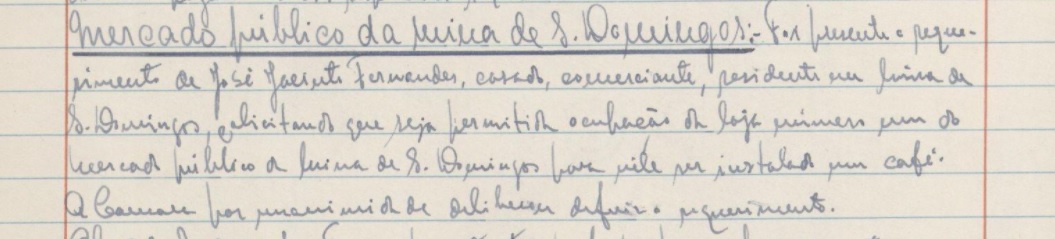 Mercado público da mina de S. Domingos:- Foi presente o reque-
rimento de José Jacinto Fernandes, casado, comerciante, residente na mina de
S. Domingos, solicitando que seja permitida ocupação da loja número um do
mercado público da mina de S. Domingos para nele ser instalado um café.
A Camara por unanimidade deliberou deferir o requerimento.